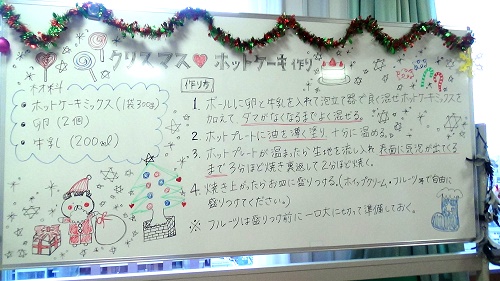 クリスマス ホットケーキ作り
材料
・ホットケーキミックス(1袋300g)
・卵(2個)
・牛乳(200ml)
作り方
1. ボールに卵と牛乳を入れて泡立て器で良く混ぜホットケーキミックスを
加えてダマがなくなるまでよく混ぜる。
2. ホットプレートに油を薄く塗り、十分に温める。
3. ホットプレートが温まったら生地を流し入れ表面に気泡が出てくる
まで3分ほど焼き裏返して2分ほど焼く。
4. 焼き上がったらお皿に盛りつける。(ホイップクリーム・フルーツ等で自由に
盛りつけてください。)
※ フルーツは盛りつけ前に一口大にきって準備しておく。